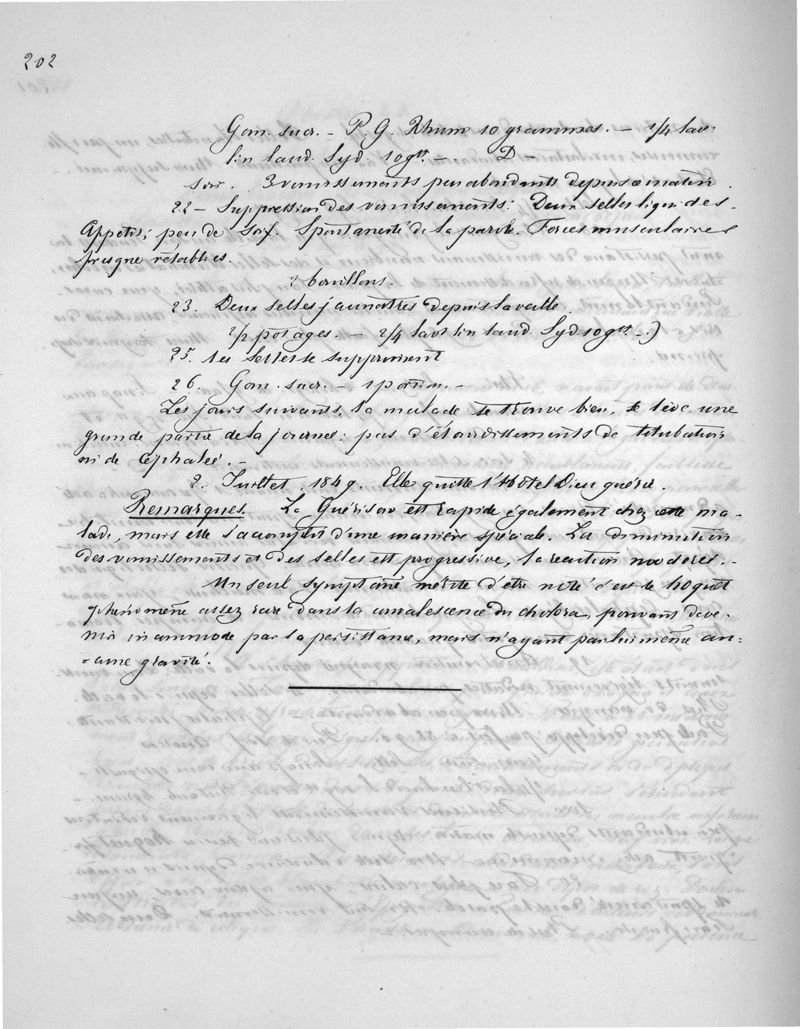 202
Gom. sucr. - P. G. Rhum 10 grammes. - 2/4 lav.
lin laud. Syd 10 gtt -. D -
Soir. 3 vomissements peu abondants depuis ce matin.
22 - Suppression des vomissements: Deux selles liquides.
Appetit; peu de soif. Spontaneité de la parole. Forces musculaires
presque rétablies.
2 bouillons.
23. Deux selles jaunâtres depuis la veille
2/2 potages. - 2/4 lav lin laud Syd 10 gtt -.)
25. Les selles se suppriment
26. Gom. sucr. - 1 portion. -
Les jours suivants, la malade se trouve bien, se lève une
grande partie de la journée: pas d'étourdissements de titubation
ni de céphalée. -
2. Juillet. 1849. Elle quitte l'Hôtel Dieu guérie.
Remarques. La Guérison est rapide également chez cette ma-
lade, mais elle s'accomplit d'une manière spéciale. La diminution
des vomissements et des selles est progressive, la réaction modérée. -
Un seul symptôme mérite d'être noté c'est le hoquet
phénomène assez rare dans la convalescence du choléra, pouvant deve-
nir incommode par sa persistance, mais n'ayant par lui même au-
-cune gravité.